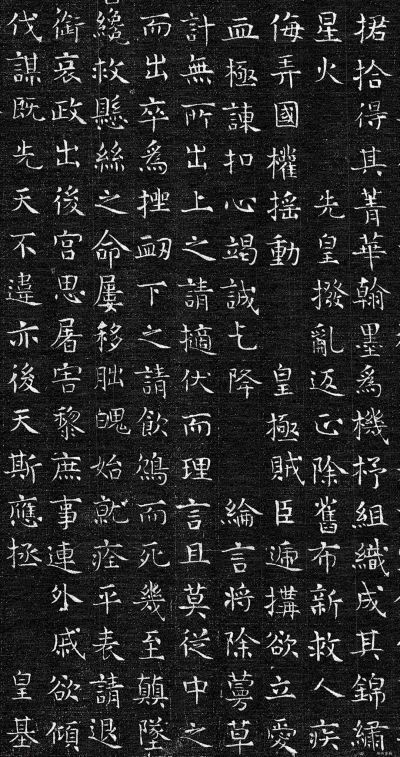 捃拾得其菁華翰墨爲機杼組織成其錦繡
星火 先皇撥亂返正除舊布新救人疾
侮弄國權搖動 皇極賊臣遞搆欲立愛
血極諫扣心竭誠乞降 綸言將除蔓草
計無所出上之請擿伏而理言且莫從中之
而出卒爲挫衄下之請飲鴆而死幾至顛墜
纔救懸絲之命屢移朏魄始就痊平表請退
銜哀政出後宮思屠害黎庶事連外戚欲傾
伐謀既先天不違亦後天斯應拯 皇基